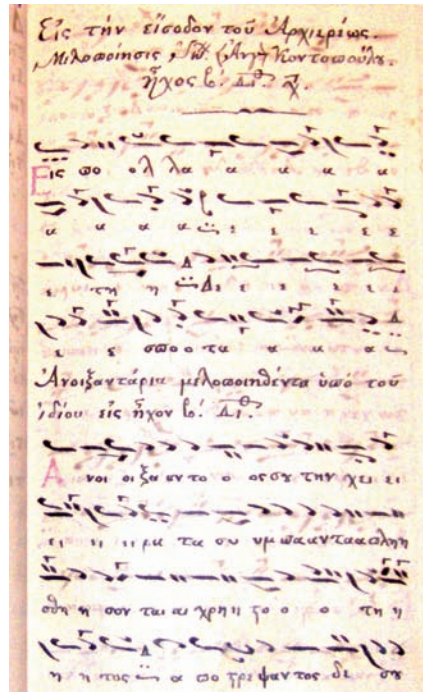 Εἰς τὴν εἴσοδον τοῦ Ἀρχιερέως.
Μελοποίησις, (Ἀγγ) Κοντοπούλου.
ἦχος β΄. Δι
Εις πο ο λ λα α α α α
α α α α ε ε ε ε
ε τη η Δε ε ε ε ε
ε ε σπο ο τα α α α
Ἀνοιξαντάρια μελοποιηθέντα ὑπὸ τοῦ
ἰδίου εἰς ἦχον β΄. Δι
Α νοι οι ξα αν το ο ος σου την χει ει
ει ει ει ρα τα συ υμ πα αν τα α πλη η
σθη η σον ται αι χρη η το ο ο τη η
η η τος α πο τρε ψαν τος δε σου